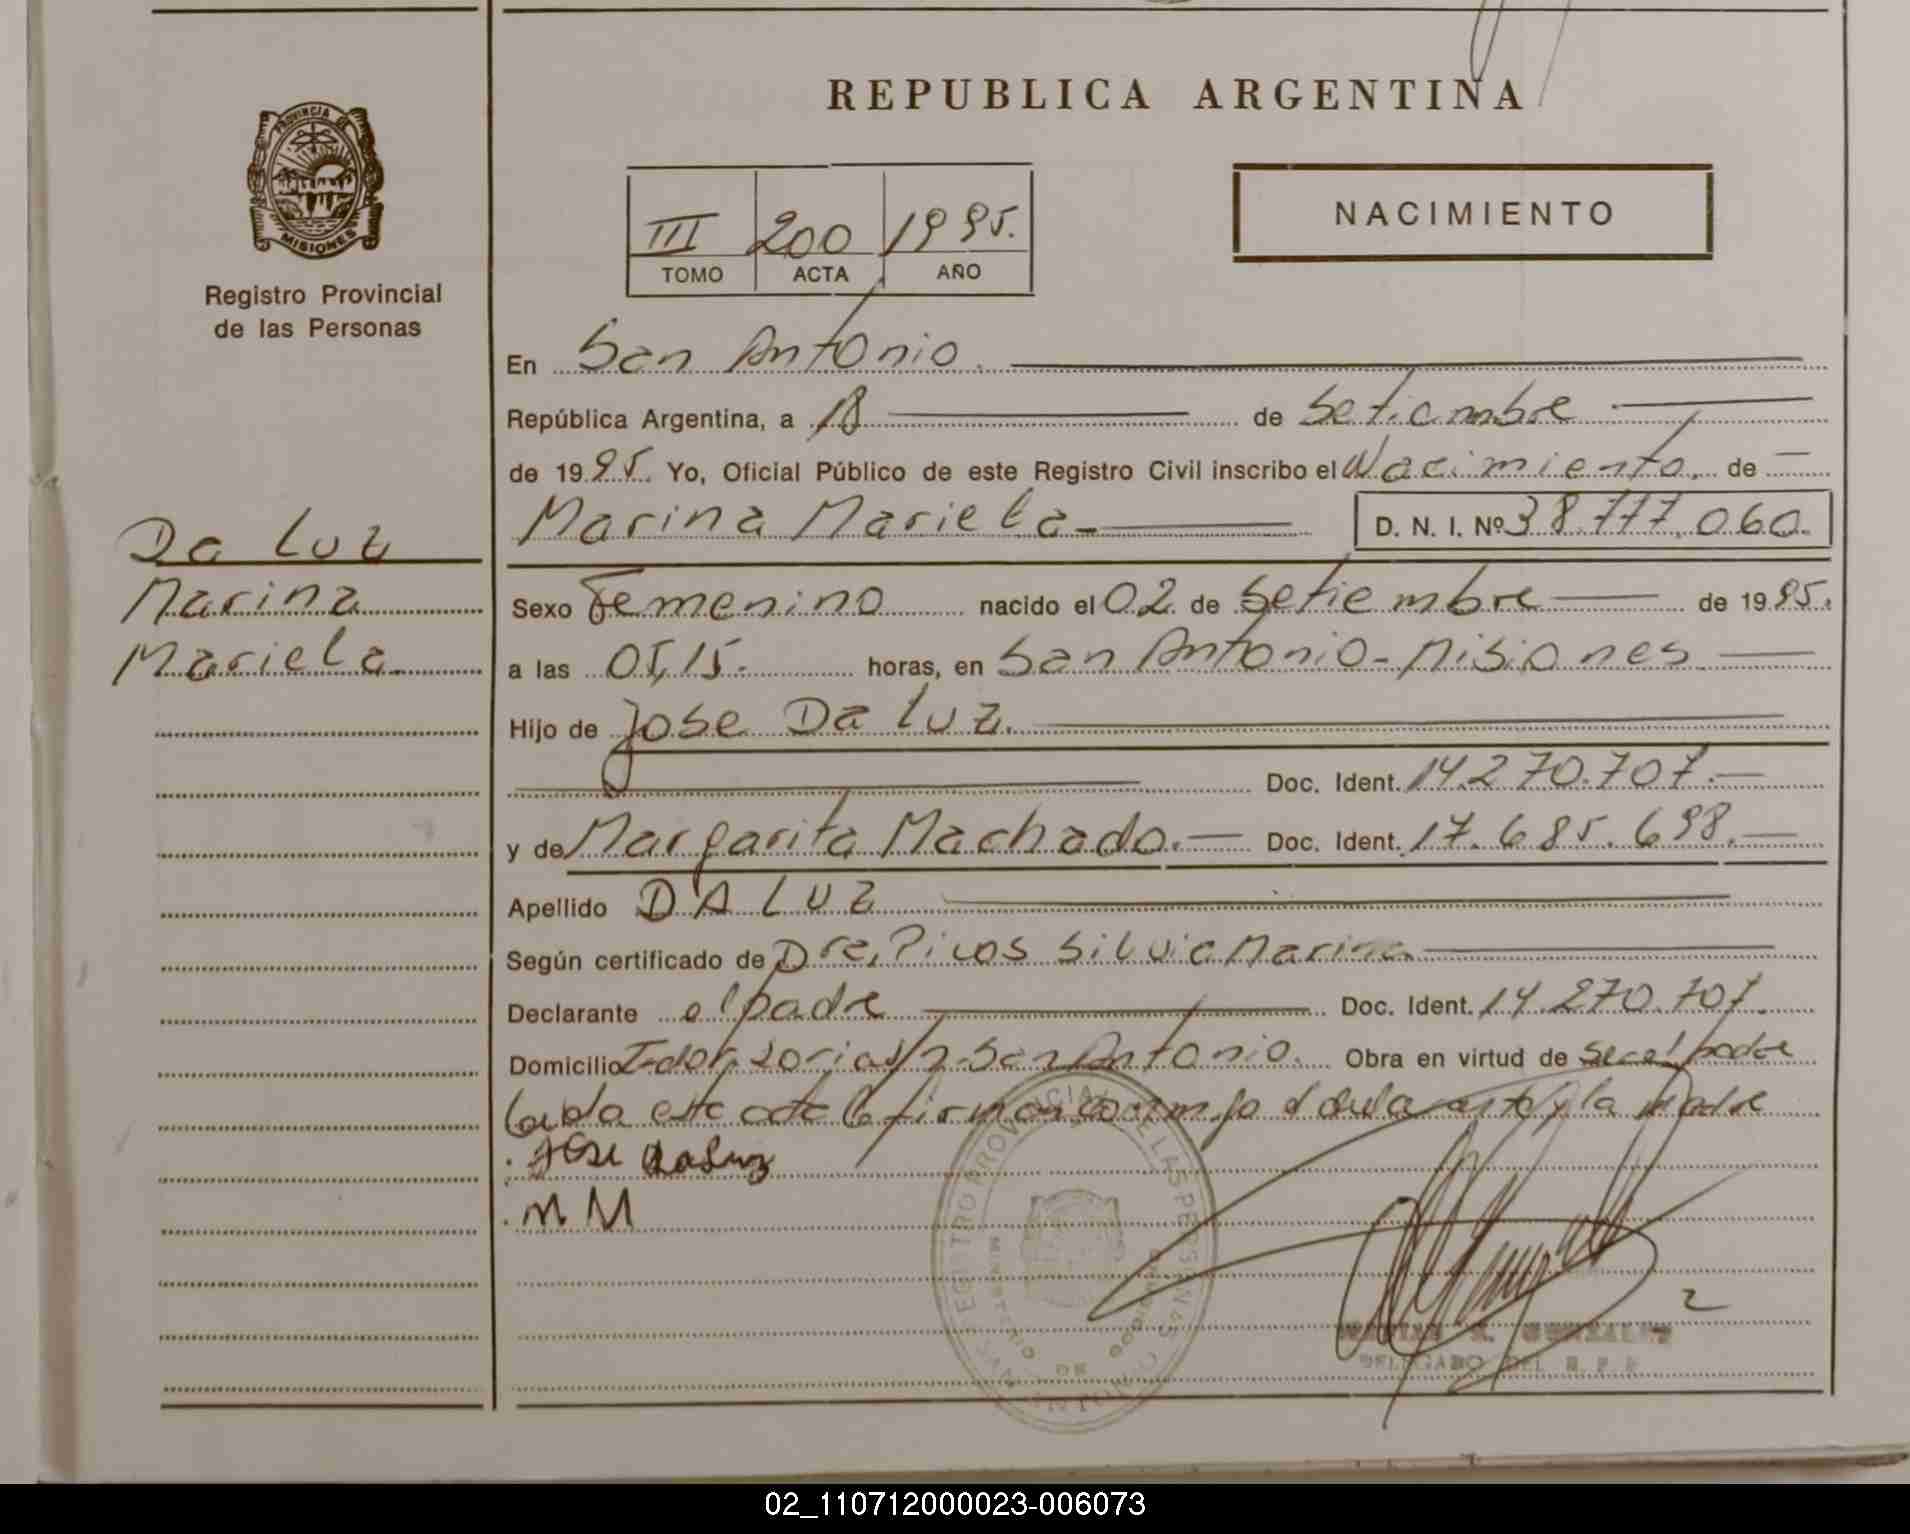 REPUBLICA ARGENTINA
PROVINCIA DE
MISIONES
Registro Provincial
de las Personas
III 200 1995.
TOMO ACTA AÑO
NACIMIENTO
En San Antonio.
República Argentina, a 18 de Setiembre
de 1995. Yo, Oficial Público de este Registro Civil inscribo el Nacimiento. de
Marina Mariela D. N. I. Nº 38.777.060.
Da Luz
Marina
Mariela
Sexo Femenino nacido el 02 de Setiembre de 1995.
a las 05,15. horas, en San Antonio - Misiones
Hijo de Jose Da Luz.
Doc. Ident. 14.270.707.
y de Margarita Machado. Doc. Ident. 17.685.698.
Apellido DA LUZ
Según certificado de Dra. Picos Silvia Marina
Declarante el padre Doc. Ident. 14.270.707.
Domicilio San Antonio. Obra en virtud de ser el padre
Leida este acta la firman conmigo el declarante y la Madre
Jose Daluz
M M
REGISTRO PROVINCIAL DE LAS PERSONAS
MINISTERIO DE GOBIERNO
SAN ANTONIO
GONZALEZ
DELEGADO DEL R. P. P.
2
02_110712000023-006073